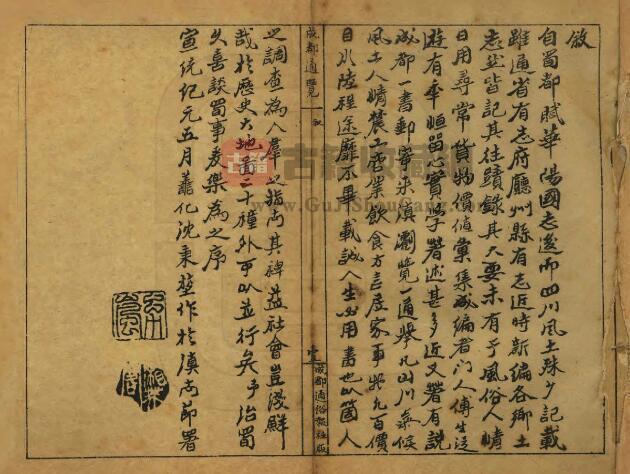 敘
自蜀都賦華陽國志後而四川風土殊少記載
雖通省有志府廳州縣有志近時新編各鄉土
志然皆記其往蹟錄其大要未有于風俗人情
日用尋常貨物價值彙集成編者門人傅生泛
遊有年恒留心實學著述甚多近又著有說
成都一書郵寄來滇瀏覽一通舉凡山川氣候
風土人情農工商業飲食方言居家事與凡百價
目水陸程途靡不畢載誠人生必用書也以箇人
成都通覽
敘
成都通俗報社版
之調查為人羣之指南其裨益社會豈淺鮮
哉於歷史大地番二十種外可以並行矣予治蜀
久喜談蜀事爰樂為之序
宣統紀元五月蕭化沈秉堃作於滇南節署
古籍收藏
www.GuJiShouCang.com